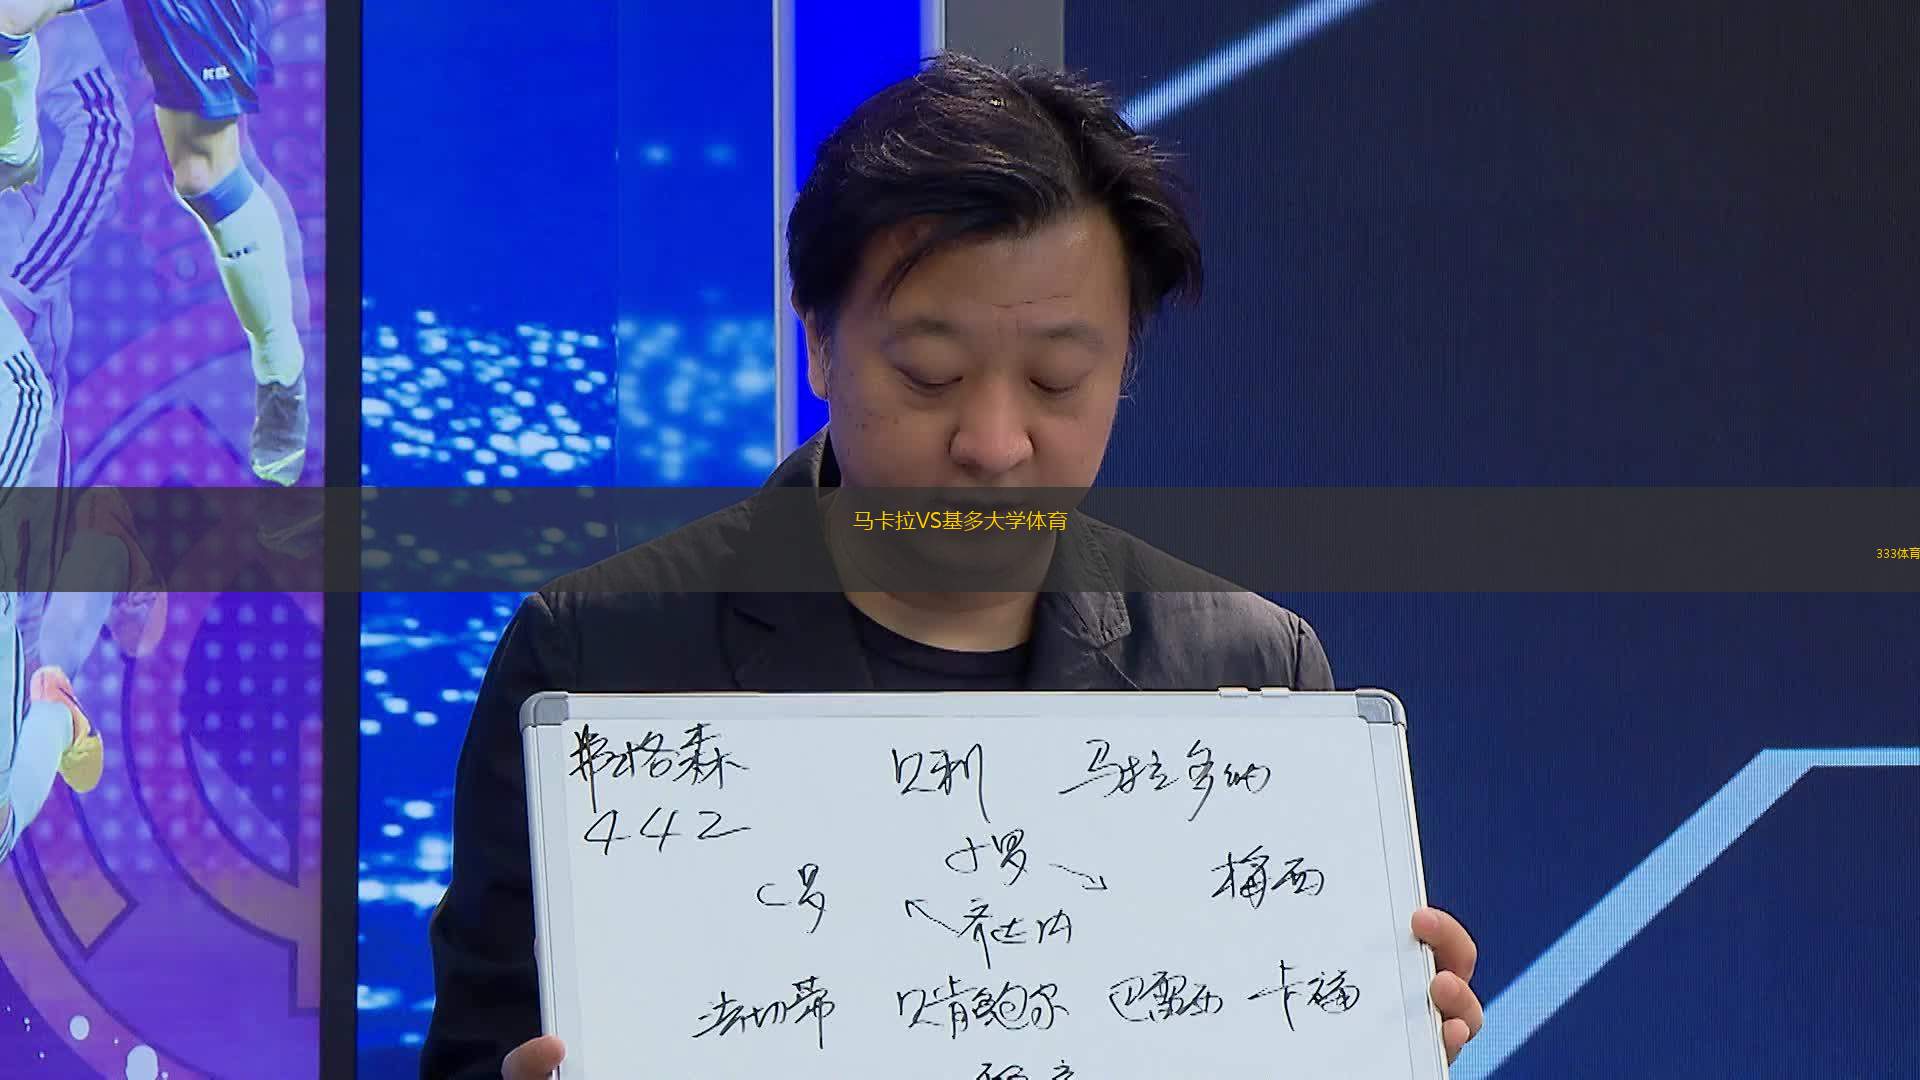 马卡拉VS基多大学体育
333体育
弗格森 贝利 马拉多纳
442
小罗
C罗 梅西
齐达内
法切蒂 贝肯鲍尔 巴雷西 卡福